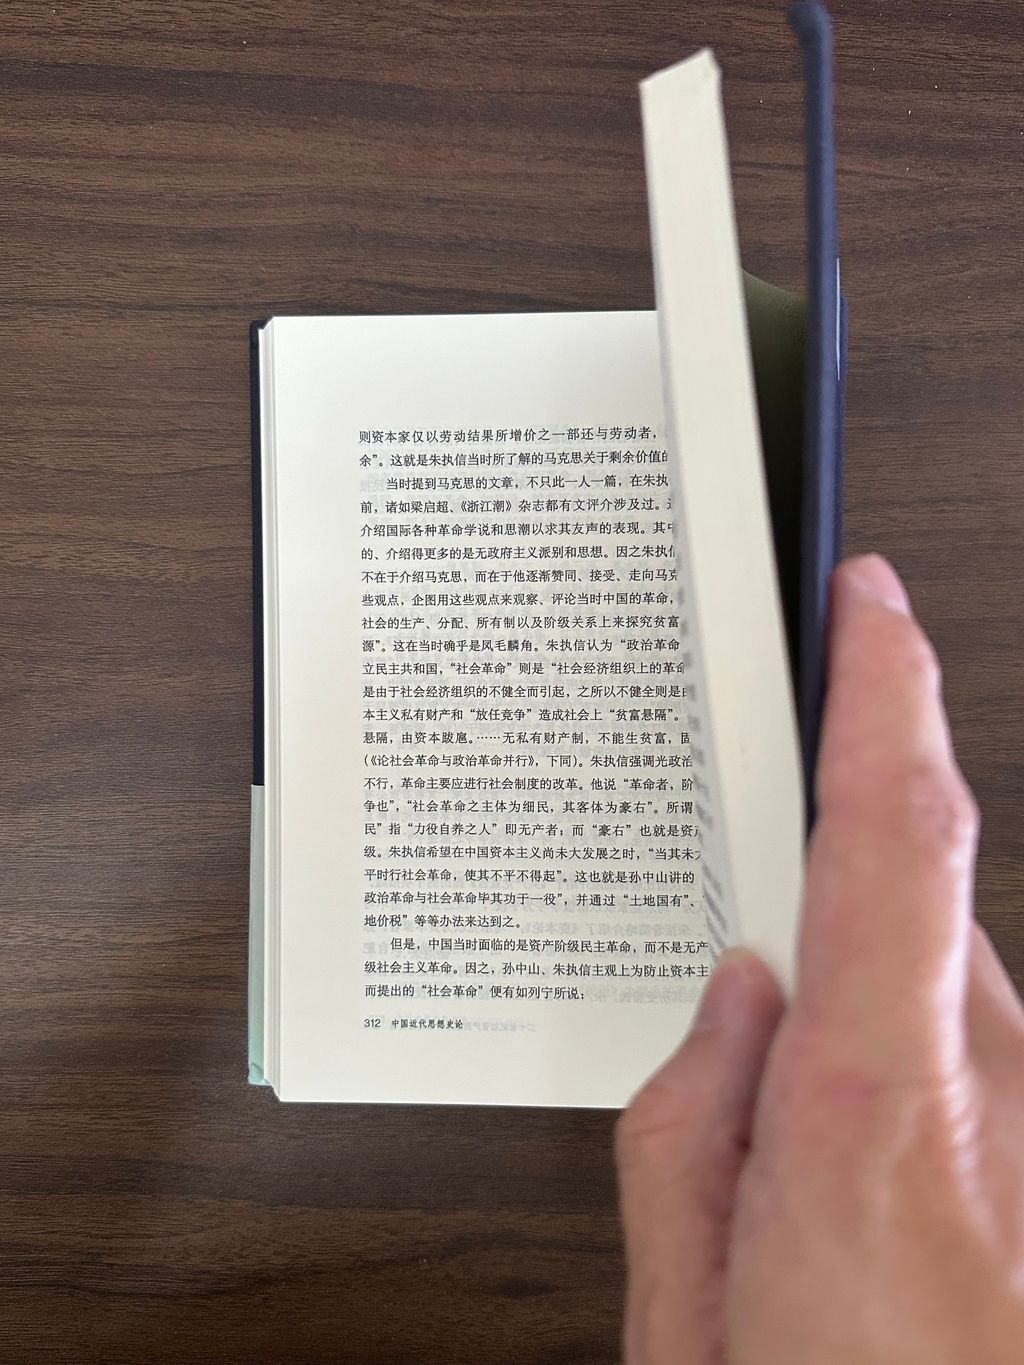 则资本家仅以劳动结果所增价之一部还与劳动者，
余”。这就是朱执信当时所了解的马克思关于剩余价值的
当时提到马克思的文章，不只此一人一篇，在朱执
前，诸如梁启超、《浙江潮》杂志都有文评介涉及过。
介绍国际各种革命学说和思潮以求其友声的表现。其中
的、介绍得更多的是无政府主义派别和思想。因之朱执信
不在于介绍马克思，而在于他逐渐赞同、接受、走向马克
些观点，企图用这些观点来观察、评论当时中国的革命，
社会的生产、分配、所有制以及阶级关系上来探究贫富
源”。这在当时确乎是凤毛麟角。朱执信认为“政治革命
立民主共和国，“社会革命”则是“社会经济组织上的革命
是由于社会经济组织的不健全而引起，之所以不健全则是由
本主义私有财产和“放任竞争”造成社会上“贫富悬隔”。
悬隔，由资本跋扈。……无私有财产制，不能生贫富，固
（《论社会革命与政治革命并行》，下同）。朱执信强调光政治
不行，革命主要应进行社会制度的改革。他说“革命者，阶
争也”，“社会革命之主体为细民，其客体为豪右”。所谓
民”指“力役自养之人”即无产者；而“豪右”也就是资产
级。朱执信希望在中国资本主义尚未大发展之时，“当其未大
平时行社会革命，使其不平不得起”。这也就是孙中山讲的
政治革命与社会革命毕其功于一役”，并通过“土地国有”、
地价税”等等办法来达到之。
但是，中国当时面临的是资产阶级民主革命，而不是无产
级社会主义革命。因之，孙中山、朱执信主观上为防止资本主
而提出的“社会革命”便有如列宁所说：
312 中国近代思想史论